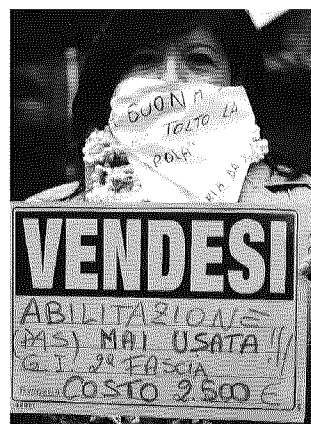 BUONA
TOLTO LA
VENDESI
ABILITAZIONE
(PAS) MAI USATA!!!
G.I. 2ª FASCIA
COSTO 2.500 €